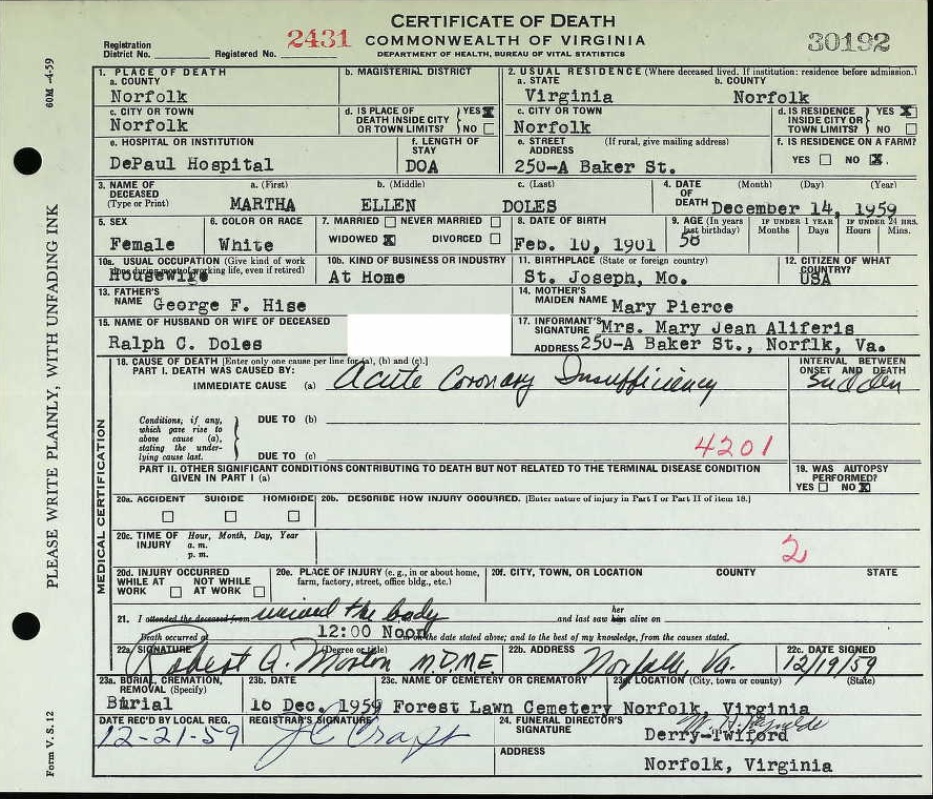 CERTIFICATE OF DEATH
COMMONWEALTH OF VIRGINIA
DEPARTMENT OF HEALTH, BUREAU OF VITAL STATISTICS
Registration District No. Registered No. 2431
30192
60M -4-59
PLEASE WRITE PLAINLY, WITH UNFADING INK
Form V. S. 12
1. PLACE OF DEATH
a. COUNTY
Norfolk
b. MAGISTERIAL DISTRICT
2. USUAL RESIDENCE (Where deceased lived. If institution: residence before admission.)
a. STATE
Virginia
b. COUNTY
Norfolk
c. CITY OR TOWN
Norfolk
d. IS PLACE OF DEATH INSIDE CITY OR TOWN LIMITS? YES X NO
c. CITY OR TOWN
Norfolk
d. IS RESIDENCE INSIDE CITY OR TOWN LIMITS? YES X NO
e. HOSPITAL OR INSTITUTION
DePaul Hospital
f. LENGTH OF STAY
DOA
e. STREET ADDRESS (If rural, give mailing address)
250-A Baker St.
f. IS RESIDENCE ON A FARM?
YES NO X.
3. NAME OF DECEASED (Type or Print)
a. (First) b. (Middle) c. (Last)
MARTHA ELLEN DOLES
4. DATE OF DEATH (Month) (Day) (Year)
December 14, 1959
5. SEX
Female
6. COLOR OR RACE
White
7. MARRIED NEVER MARRIED
WIDOWED X DIVORCED
8. DATE OF BIRTH
Feb. 10, 1901
9. AGE (In years last birthday)
58
IF UNDER 1 YEAR Months Days
IF UNDER 24 HRS. Hours Mins.
10a. USUAL OCCUPATION (Give kind of work done during most of working life, even if retired)
Housewife
10b. KIND OF BUSINESS OR INDUSTRY
At Home
11. BIRTHPLACE (State or foreign country)
St. Joseph, Mo.
12. CITIZEN OF WHAT COUNTRY?
USA
13. FATHER'S NAME George F. Hise
14. MOTHER'S MAIDEN NAME Mary Pierce
15. NAME OF HUSBAND OR WIFE OF DECEASED
Ralph C. Doles
17. INFORMANT'S SIGNATURE Mrs. Mary Jean Aliferis
ADDRESS 250-A Baker St., Norflk, Va.
MEDICAL CERTIFICATION
18. CAUSE OF DEATH [Enter only one cause per line for (a), (b) and (c).]
PART I. DEATH WAS CAUSED BY:
IMMEDIATE CAUSE (a) Acute Coronary Insufficiency
INTERVAL BETWEEN ONSET AND DEATH
sudden
Conditions, if any, which gave rise to above cause (a), stating the underlying cause last.
DUE TO (b)
DUE TO (c)
4201
PART II. OTHER SIGNIFICANT CONDITIONS CONTRIBUTING TO DEATH BUT NOT RELATED TO THE TERMINAL DISEASE CONDITION GIVEN IN PART I (a)
19. WAS AUTOPSY PERFORMED?
YES NO X
20a. ACCIDENT SUICIDE HOMICIDE
20b. DESCRIBE HOW INJURY OCCURRED. [Enter nature of injury in Part I or Part II of item 18.]
20c. TIME OF INJURY Hour, Month, Day, Year
a. m.
p. m.
2
20d. INJURY OCCURRED
WHILE AT WORK NOT WHILE AT WORK
20e. PLACE OF INJURY (e. g., in or about home, farm, factory, street, office bldg., etc.)
20f. CITY, TOWN, OR LOCATION COUNTY STATE
21. I attended the deceased from viewed the body and last saw her him alive on
Death occurred at 12:00 Noon on the date stated above; and to the best of my knowledge, from the causes stated.
22a. SIGNATURE (Degree or title)
Robert G. Morton M.D. M.E.
22b. ADDRESS
Norfolk, Va.
22c. DATE SIGNED
12/19/59
23a. BURIAL, CREMATION, REMOVAL (Specify)
Burial
23b. DATE
16 Dec. 1959
23c. NAME OF CEMETERY OR CREMATORY
Forest Lawn Cemetery
23d. LOCATION (City, town or county) (State)
Norfolk, Virginia
DATE REC'D BY LOCAL REG.
12-21-59
REGISTRAR'S SIGNATURE
24. FUNERAL DIRECTOR'S SIGNATURE
Derry-Twiford
ADDRESS
Norfolk, Virginia